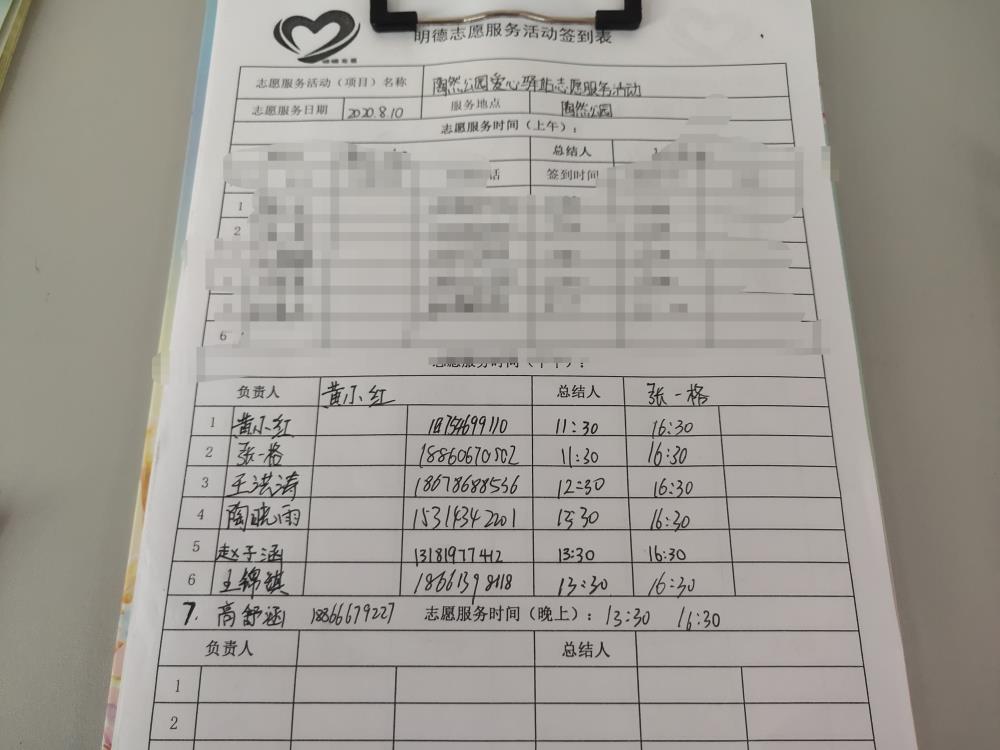 明德志愿服务活动签到表
志愿服务活动（项目）名称 陶然公园爱心驿站志愿服务活动
志愿服务日期 2020.8.10 服务地点 陶然公园
志愿服务时间（上午）：
总结人
话 签到时间
1
2
6
志愿服务时间（下午）：
负责人 黄小红 总结人 张一格
1 黄小红 11:30 16:30
2 张一格 18860670502 11:30 16:30
3 王洪涛 18678688536 12:30 16:30
4 陶晓雨 15314342201 13:30 16:30
5 赵子涵 13181977412 13:30 16:30
6 王锦镇 13:30 16:30
7. 高舒涵 18866679227 志愿服务时间（晚上）：13:30 16:30
负责人 总结人
1
2